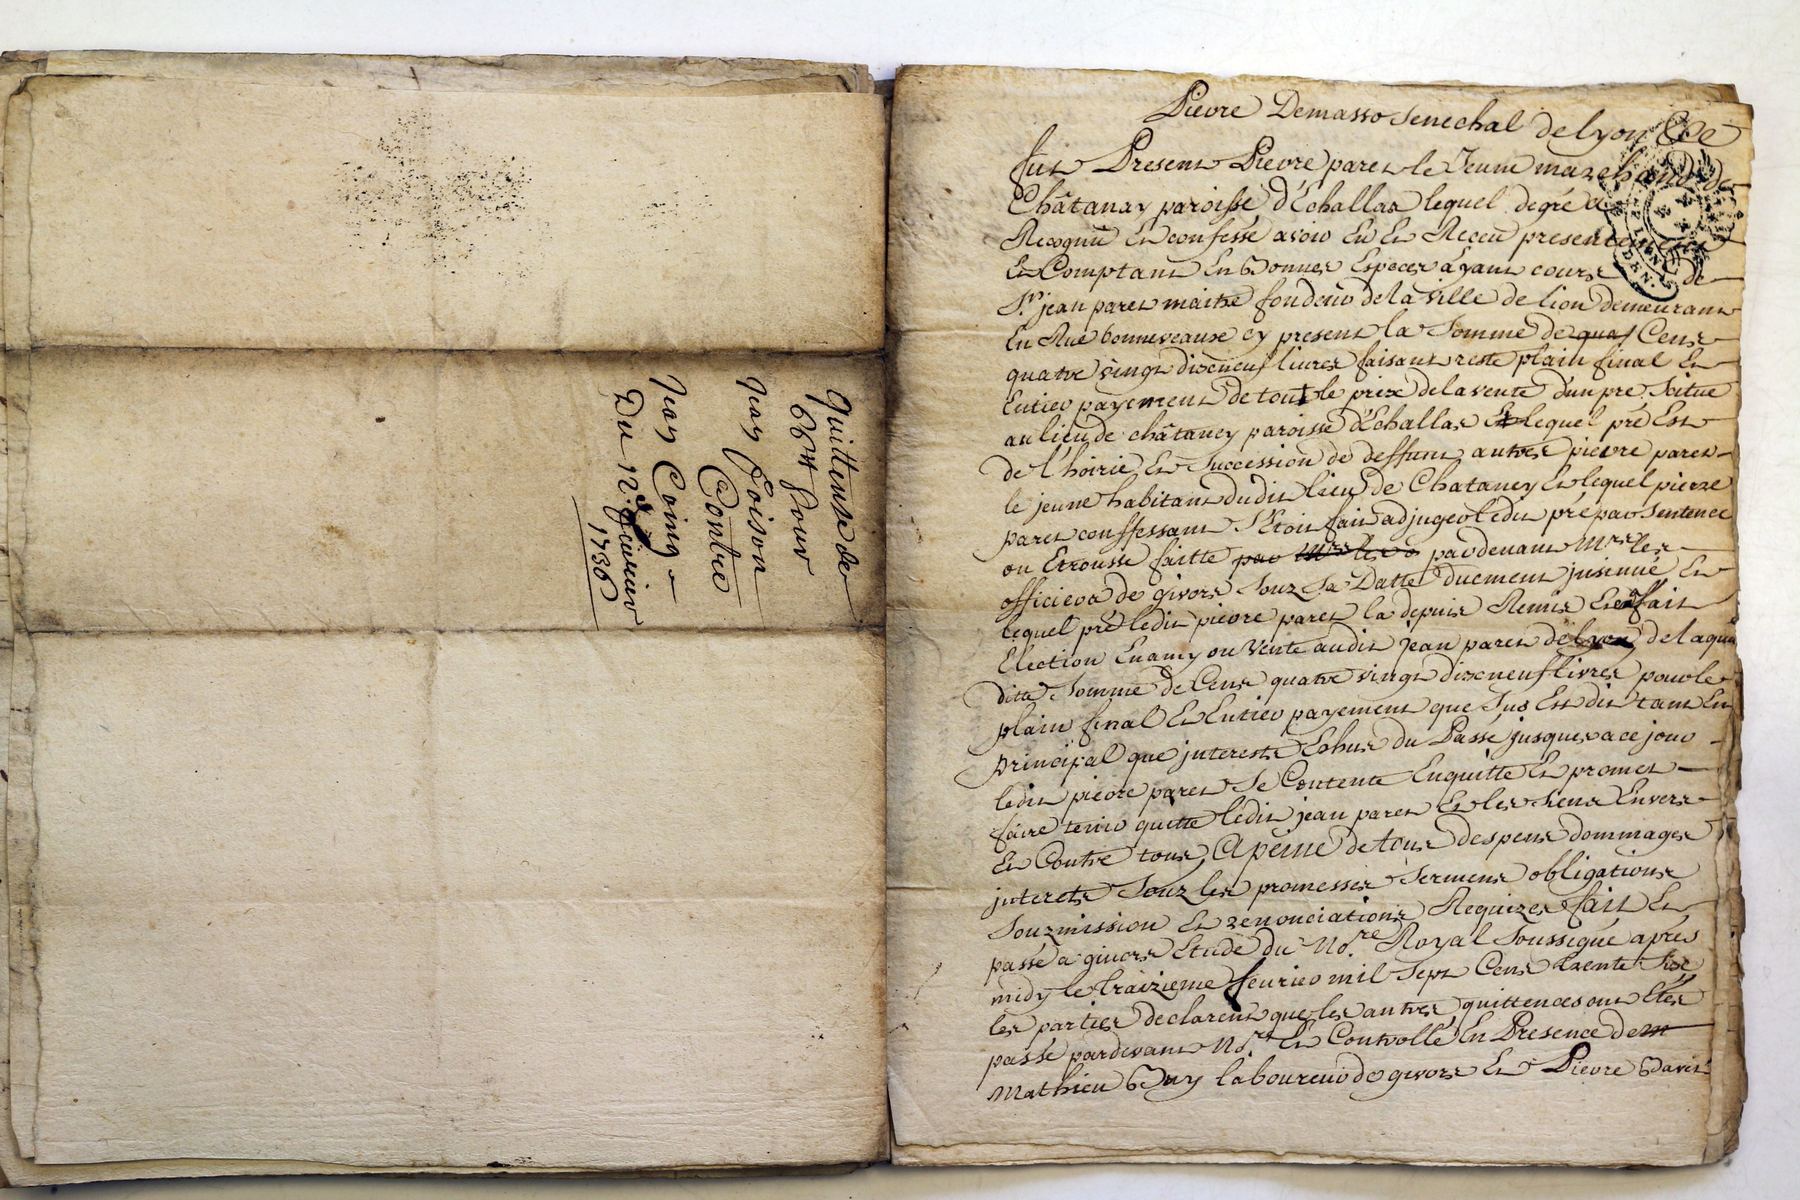 Quittense de
66# pour
Jean Foison
Contre
Jean Coing
Du 12e feuvier
1736
Pierre Demasso Senechal de Lyon &c
fut Present Pierre paret le Jeune marchand de
Châtanay paroisse d'Echallas lequel de gré a
Recognu Et confessé avoir Eu Et Receu presentement
Et Comptant En Bonnes Especes ayant cours de
Sr. jean paret maitre fondeur de la ville de lion demeurant
En Rue bonneveaux cy present la Somme de quat Cent
quatre vingt dixeneuf livres faisant reste plain final Et
Entier payement de tout le prix de la vente d'un pre Scitue
au lieu de châtaney paroisse d'Echallas lequel pré Est
de l'hoirie Et Succession de deffunt autre pierre paret
le jeune habitant dudit lieu de Chataney Et lequel pierre
paret conffessant S'Etoit fait adjuger ledit pré par Sentence
ou Etrousse faitte par Mrs les pardevant Mrs les
officiers de givors Souz Sa Datte duement jnsinué Et
lequel pré ledit pierre paret la depuis Remis Et fait
Election Enamy ou Vente audit jean paret de Lyon de laquelle
ditte Somme de Cent quatre vingt dixeneuf livres pour le
plain final Et Entier payement que Sus Est dit tant En
principal que jnterests Echus du Passé jusques a ce jour
ledit pierre paret Se Contente Enquitte Et promet
faire tenir quitte ledit jean paret Et les Siens Envers
Et Contre tous, Apeine de tous despens dommages
jnterets Souz les promesses Serment obligations
Souzmission Et renonciations Requizes fait Et
passé a givors Etude du No.re Royal Soussigné aprés
midy le traizieme feuvrier mil Sept Cent trente Six
les parties declarent que les autres quittences ont Etés
passé pardevant No.re Et Controllé En Presence de m
Mathieu Buy laboureur de givors Et Pierre Baret